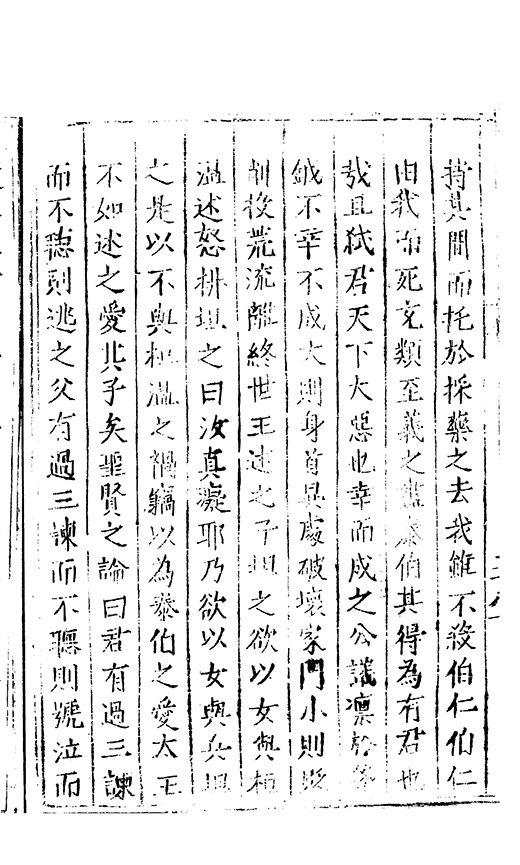 持其間而托於採藥之去我雖不殺伯仁伯仁
由我而死充類至義之盡泰伯其得為有君也
哉且弒君天下大惡也幸而成之公議凛於斧
鉞不幸不成大則身首異處破壞家門小則貶
削投荒流離終世王述之子坦之欲以女與桓
温述怒排坦之曰汝真癡耶乃欲以女與兵坦
之是以不與桓温之禍竊以為泰伯之愛太王
不如述之愛其子矣聖賢之論曰君有過三諫
而不聽則逃之父有過三諫而不聽則號泣而